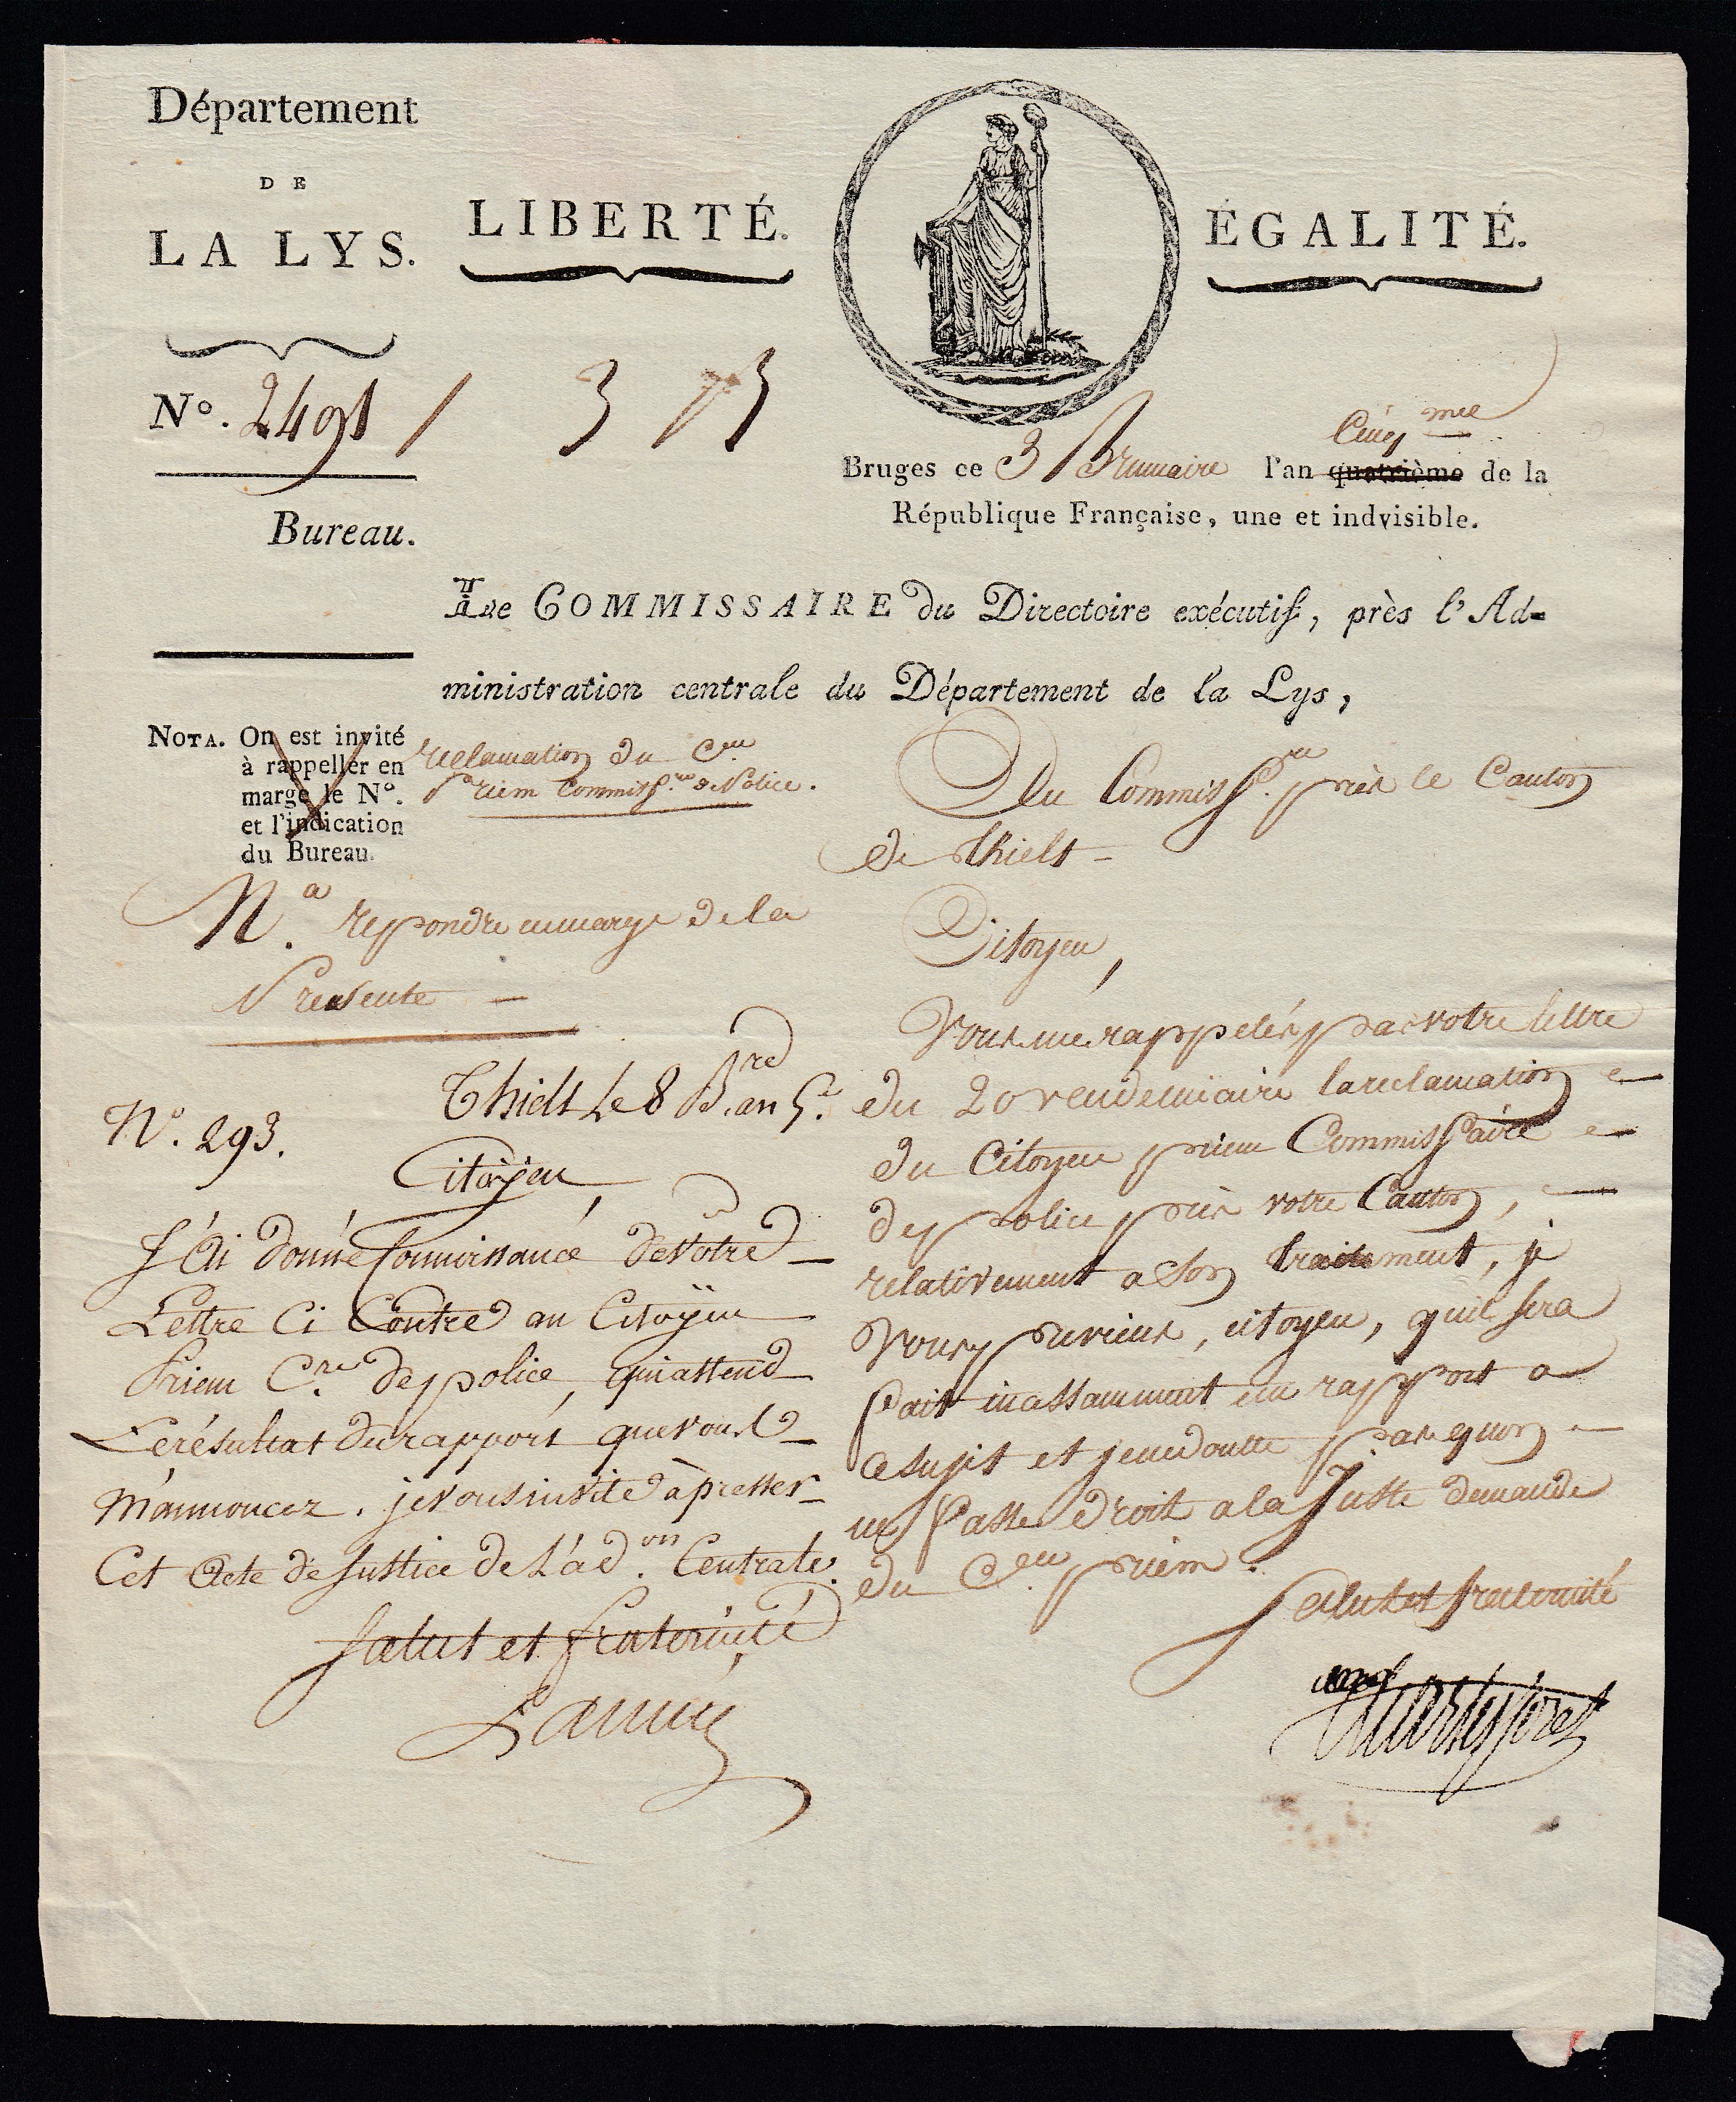 Département
DE
LA LYS.
LIBERTÉ.
ÉGALITÉ.
N°. 2491 / 3
Bruges ce 3 Brumaire l'an quatrième Cinq.me de la
République Française, une et indvisible.
Bureau.
Le COMMISSAIRE du Directoire exécutif, près l'Ad-
ministration centrale du Département de la Lys,
NOTA. On est invité
à rappeller en
marge le N°.
et l'indication
du Bureau.
reclamation du C.en
Priem Commiss.re de Police.
Au Commiss.re près le Canton
de Thielt -
N.a repondre en marge de la
Presente -
Citoyen,
Vous me rappelés par votre lettre
du 20 vendemiaire la reclamation
du Citoyen priem Commissaire
de police près votre Canton,
relativement a son traitement, je
vous previens, citoyen, quil sera
fait incessamment un rapport a
ce sujet et je ne doutte pas quon
ne fasse droit a la Juste demande
du C.en priem.
Salut et fraternité
N°. 293.
Thielt Le 8 B.re an 5.e
Citoÿen,
J'Ai donné Connoissance de votre
Lettre Ci Contre au Citoÿen
Priem C.re de police, qui attend
Le résultat du rapport que vous
m'annoncez. je vous invite à presser
Cet Acte de Justice de L'ad.on Centrale.
Salut et fraternité